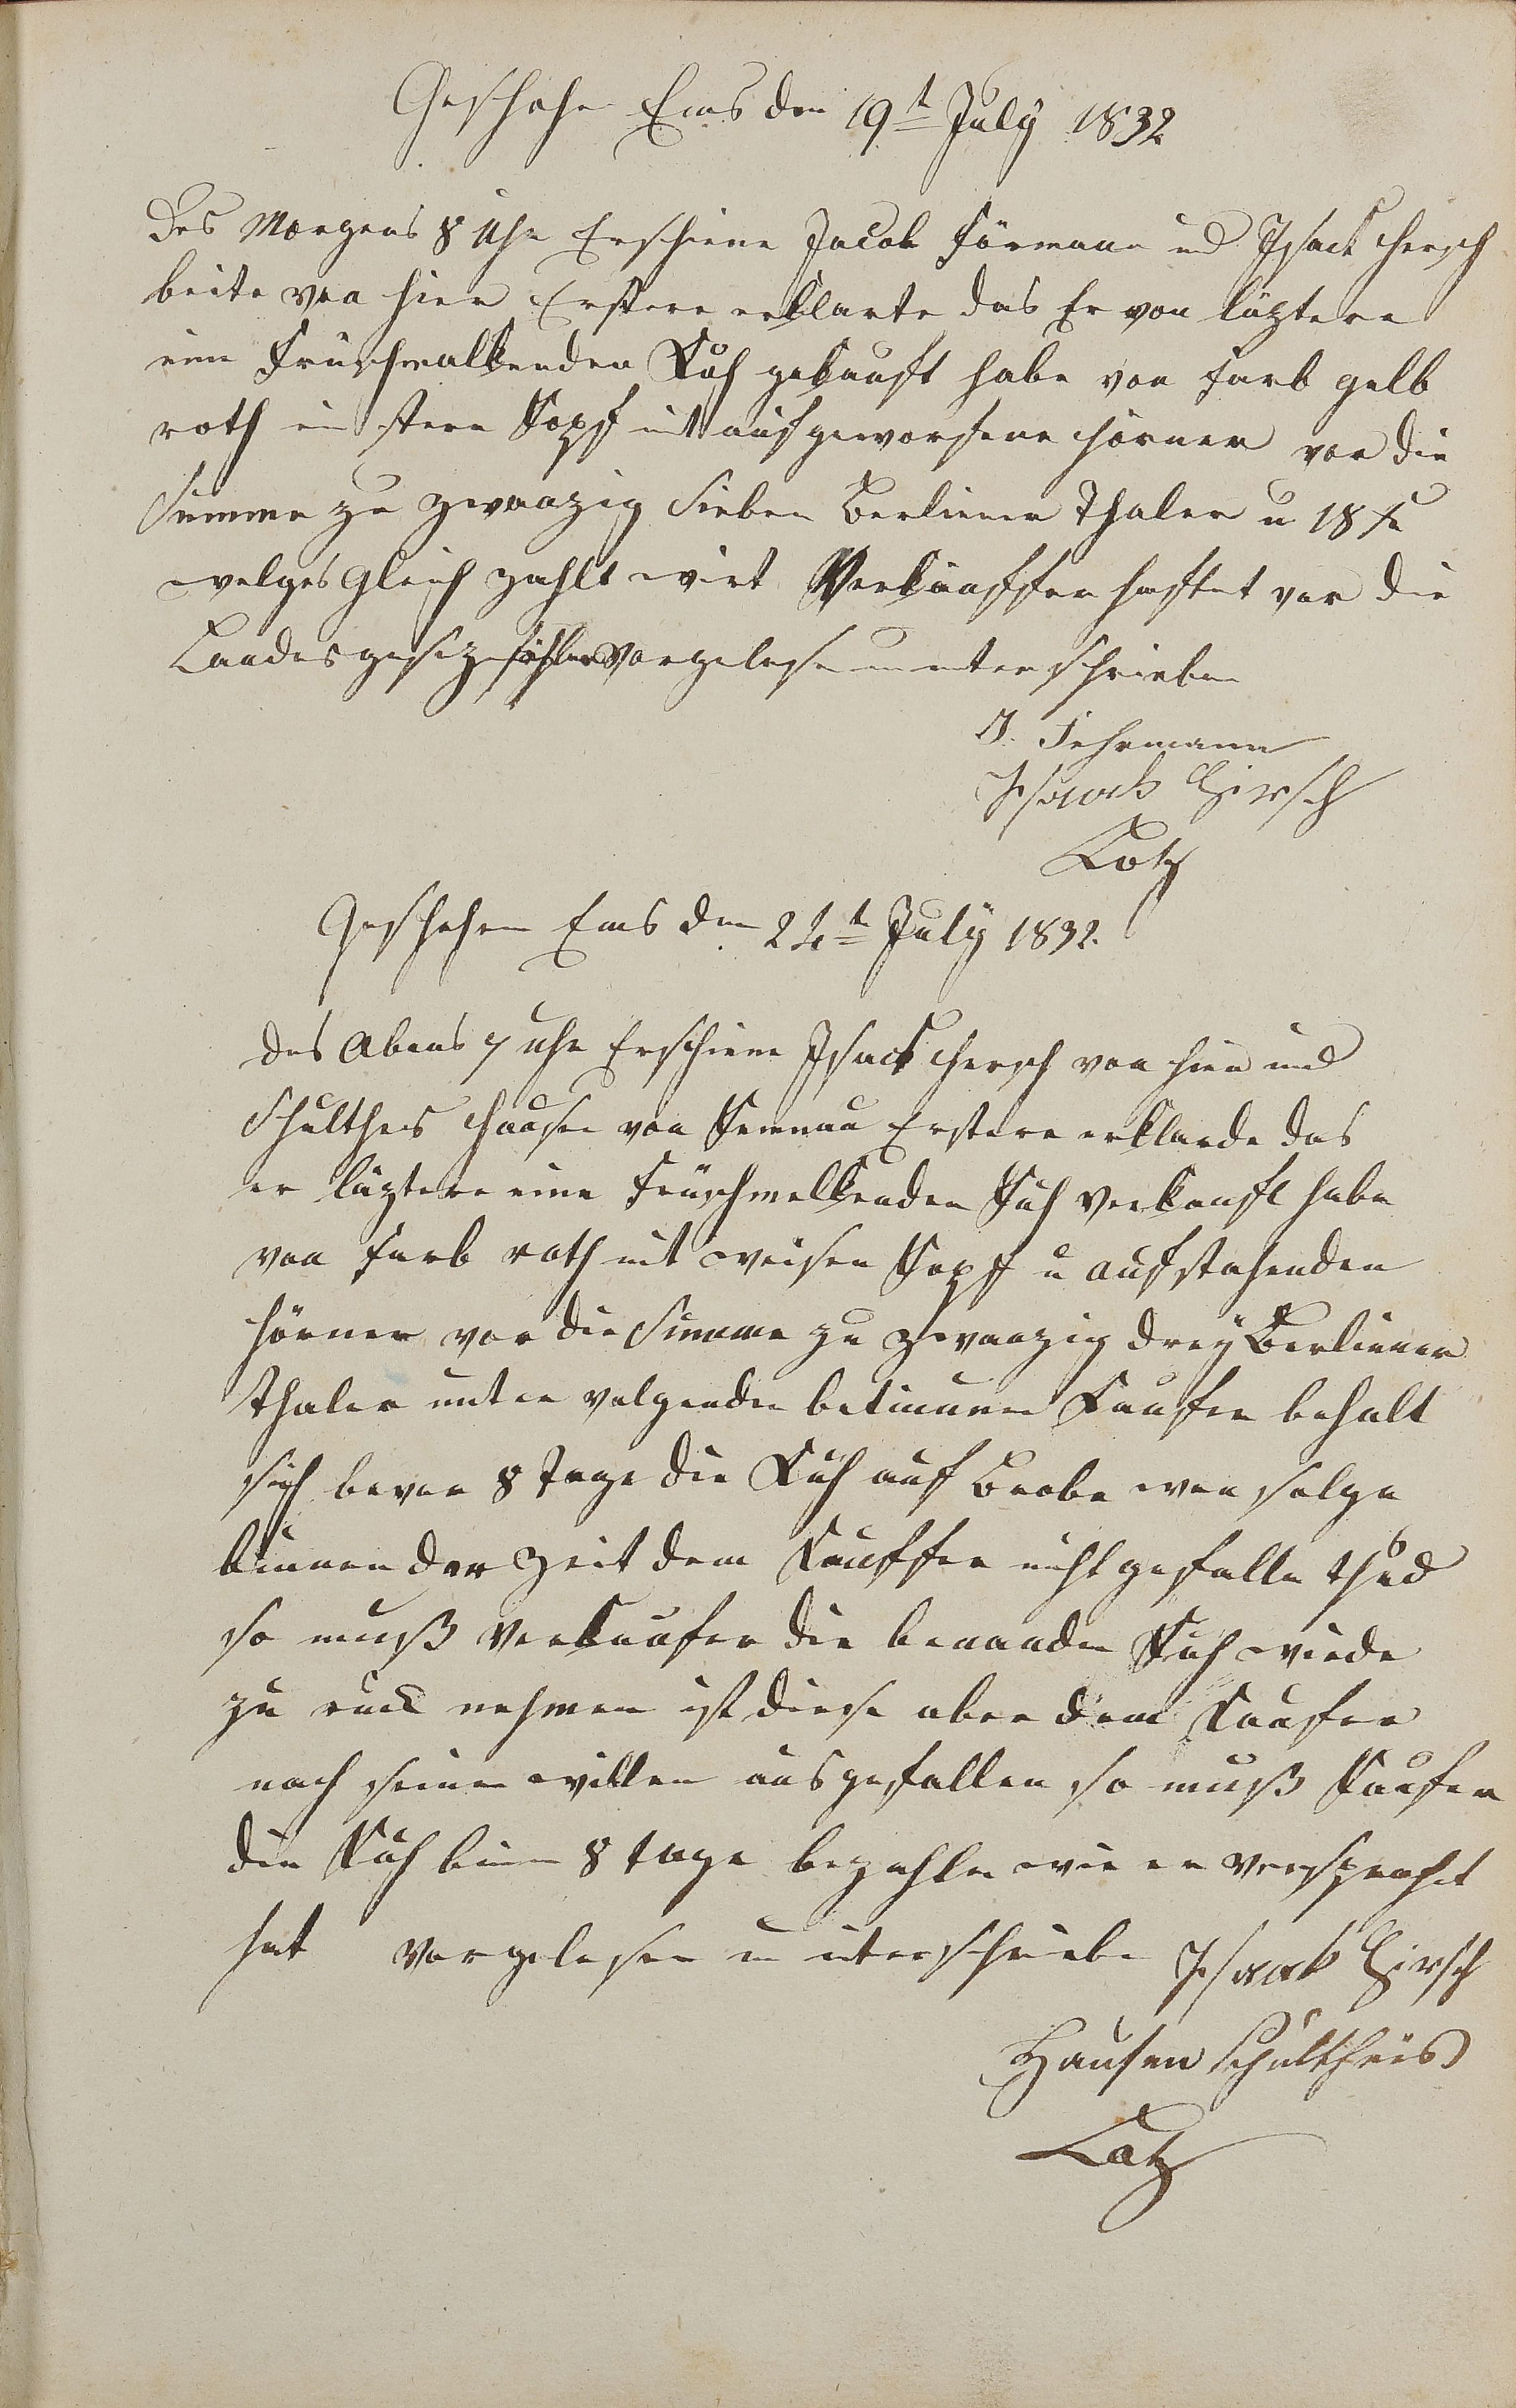 Geschehe Ems den 19t July 1832
Des Morgens 8 Uhr Erschiene Jacob Förmann und Isack Hersch
beite von hier Erstere erklarte das Er von läztere
eine Früschmalkenden Kuh gekauft habe von farb gelb
roth ein stern Kopf mit aufgeworfene Hörner vor die
Summe zu zwanzig Sieben Berliener Thaler u 18 x
welges gleich zahlt wirt Verkäuffer haftet vor die
Landesgesez fehler Vorgelese un unterschrieben
J. Fehrmann
Isaack Hirsch
Lotz
Geschehen Ems den 24t July 1832.
des Abens 7 uhr Erschiene Isack Hersch von hier und
Schultheis Hausen von Kemnau Erstere erklarde das
er läztere eine Früschmelkenden Kuh verkauft habe
von farb roth mit weisen Kopf u aufstehenden
Hörner vor die Summe zu zwanzig drey Berliener
Thaler unter volgenden betinunen Kaufer behalt
sich bevor 8 Tage die Kuh auf Brobe wen solge
binnen der Zeit dem Kauffer nicht gefalle thud
so muß Verkaufer die benanden Kuh wiede
zu ruck nehmen ist diese aber dem Kaufer
nach seinen willen ausgefallen so muß Kaufer
die Kuh binen 8 tage bezahlen wie er versprochet
hat vorgelesen un unterschrieben Isaack Hirsch
Hausen Schultheis
Lotz